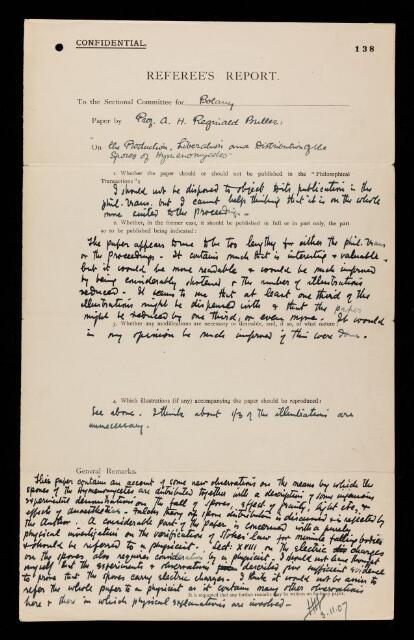 CONFIDENTIAL.
138
REFEREE'S REPORT.
To the Sectional Committee for Botany
Paper by Prof. A. H. Reginald Buller,
"On the Production, Liberation and Distribution of the
Spores of Hymenomycetes"
1. Whether the paper should or should not be published in the "Philosophical
Transactions":
I should not be disposed to object to its publication in the
Phil. Trans. but I cannot help thinking that it is on the whole
more suited to the Proceedings.
2. Whether, in the former case, it should be published in full or in part only, the part
so to be published being indicated:
The paper appears to me to be too lengthy for either the Phil. Trans
or the Proceedings. It contains much that is interesting & valuable
but it would be more readable & would be much improved
by being considerably shortened & the number of illustrations
reduced. It seems to me that at least one third of the
illustrations might be dispensed with & that the paper
might be reduced by one third, or even more. It would
3. Whether any modifications are necessary or desirable, and, if so, of what nature:
in my opinion be much improved if this were done.
4. Which illustrations (if any) accompanying the paper should be reproduced:
See above. I think about 1/3 of the illustrations are
unnecessary.
General Remarks.
This paper contains an account of some new observations on the means by which the
spores of the Hymenomycetes are distributed together with a description of some ingenious
experimental demonstrations on the fall of spores, effect of gravity, light etc, &
effects of anaesthetics. Falck's theory of spore distribution is discussed & is rejected by
the Author. A considerable part of the paper is concerned with a purely
physical investigation on the verification of Stokes' law for minute falling bodies
& should be referred to a physicist. Sect. XVIII on the electric charges
on the spores also requires consideration by a physicist. I should not have thought
myself that the experiments & observations described are sufficient evidence
to prove that the spores carry electric charges. I think it would not be amiss to
refer the whole paper to a physicist as it contains many other observations
It is requested that any further remarks may be written on
here & there in which physical explanations are involved.
3.11.07